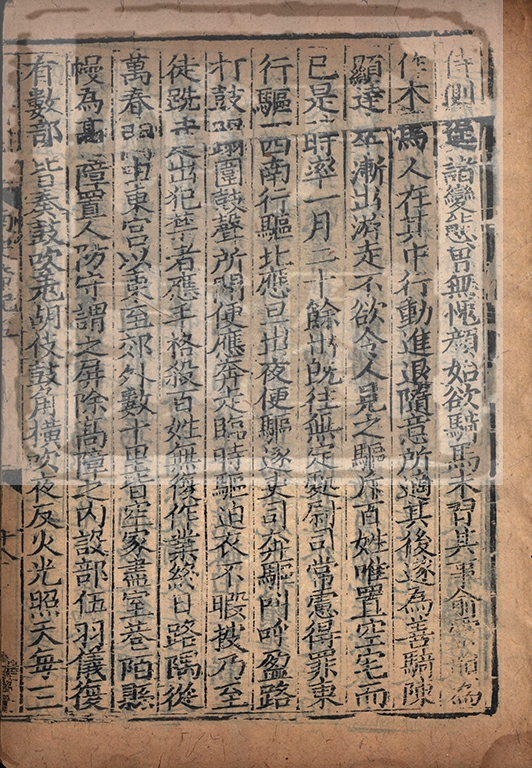 侍側逞諸變態曾無愧顏始欲騎馬未習其事俞靈韻為
作木馬人在其中行動進退隨意所適其後遂為善騎陳
顯達平漸出游走不欲令人見之驅斥百姓唯置空宅而
已是時率一月二十餘出既往無定處尉司常慮得罪東
行驅西南行驅北應旦出夜便驅逐吏司奔驅叫呼盈路
打鼓蹋圍鼓聲所聞便應奔走臨時驅迫衣不暇披乃至
徒跣走出犯禁者應手格殺百姓無復作業終日路隅從
萬春門由東宮以東至郊外數十里皆空家盡室巷陌縣
幔為高障置人防守謂之屏除高障之內設部伍羽儀復
有數部皆奏鼓吹羌胡伎鼓角橫吹夜反火光照天每三